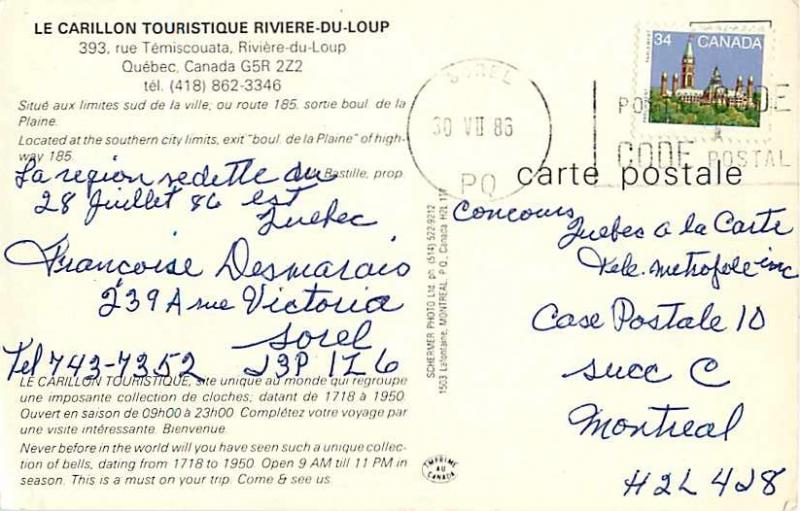 LE CARILLON TOURISTIQUE RIVIERE-DU-LOUP
393, rue Témiscouata, Rivière-du-Loup
Québec, Canada G5R 2Z2
tél. (418) 862-3346
Situé aux limites sud de la ville, ou route 185, sortie boul. de la
Plaine.
Located at the southern city limits, exit "boul. de la Plaine" of high-
way 185.
Bastille, prop.
La region vedette du
28 Juillet 86 est
Quebec
Françoise Desmarais
239 A rue Victoria
Sorel
Tel 743-7352 J3P 1Z6
LE CARILLON TOURISTIQUE, site unique au monde qui regroupe
une imposante collection de cloches, datant de 1718 à 1950.
Ouvert en saison de 09h00 à 23h00. Complétez votre voyage par
une visite intéressante. Bienvenue.
Never before in the world will you have seen such a unique collec-
tion of bells, dating from 1718 to 1950. Open 9 AM till 11 PM in
season. This is a must on your trip. Come & see us.
SCHERMER PHOTO Ltd. ph. (514) 522-9212
1503 Lafontaine, MONTREAL, P.Q., Canada H2L
IMPRIMÉ
AU
CANADA
SOREL
30 VII 86
PQ
34 CANADA
CODE
CODE POSTAL
carte postale
Concours
Quebec a la Carte
Tele. metropole inc
Case Postale 10
Succ C
Montreal
H2L 4J8